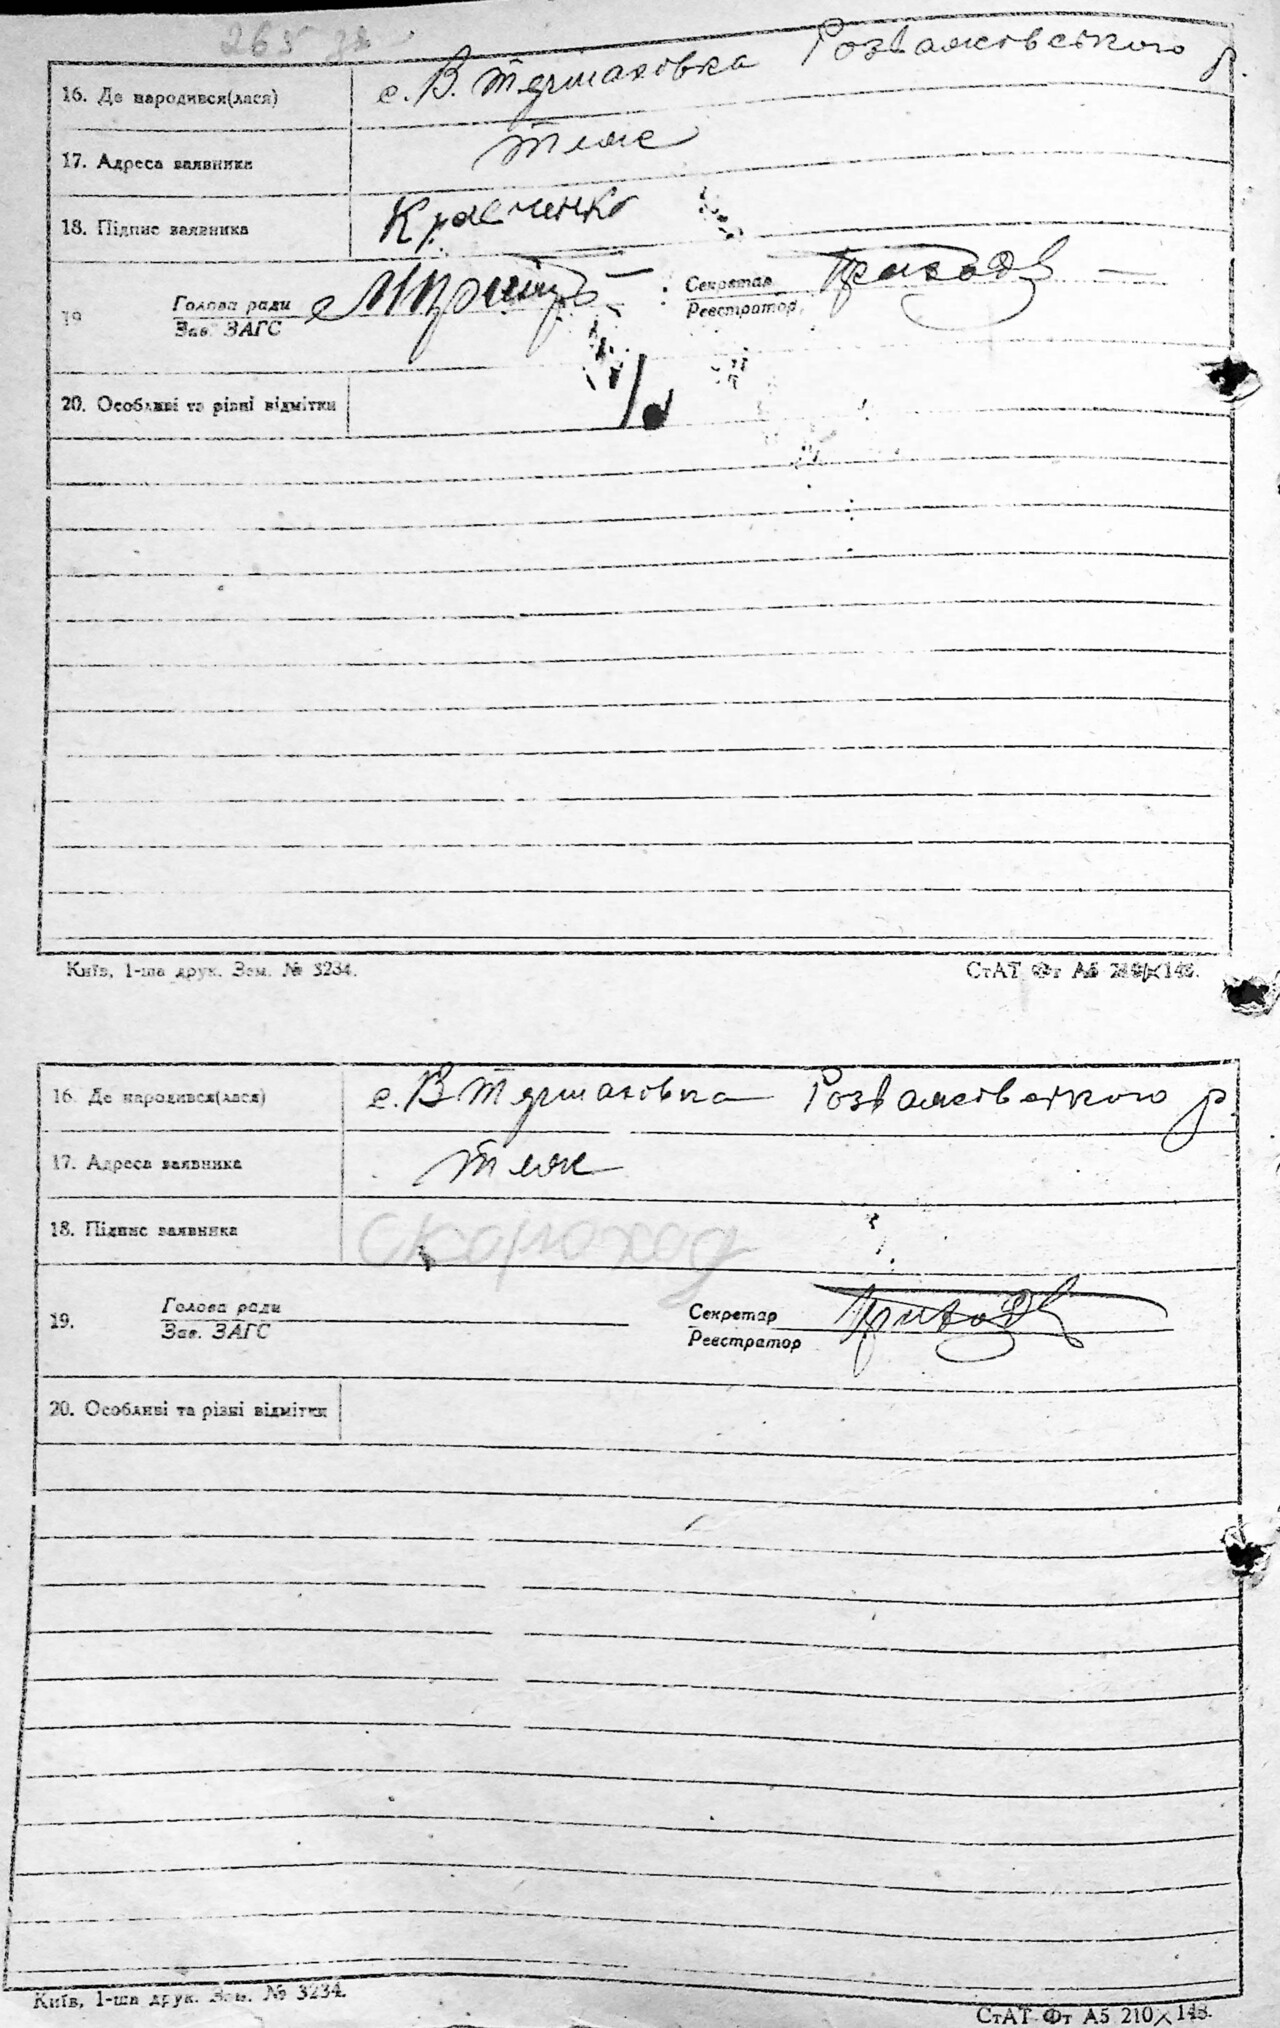 265 зв
16. Де народився(лася) с. В. Термаховка Розважівського р.
17. Адреса заявника Теж
18. Підпис заявника Кравченко
19 Голова ради Секретар Приходь
Зав. ЗАГС Реєстратор
20. Особливі та різні відмітки
Київ, 1-ша друк. Зам. № 3234.
СтАТ Фт А5 210×148.
16. Де народився(лася) с. В Термаховка Розважівського р.
17. Адреса заявника Теж
18. Підпис заявника Скороход
19. Голова ради Секретар Приходь
Зав. ЗАГС Реєстратор
20. Особливі та різні відмітки
Київ, 1-ша друк. Зам. № 3234.
СтАТ Фт А5 210×148.